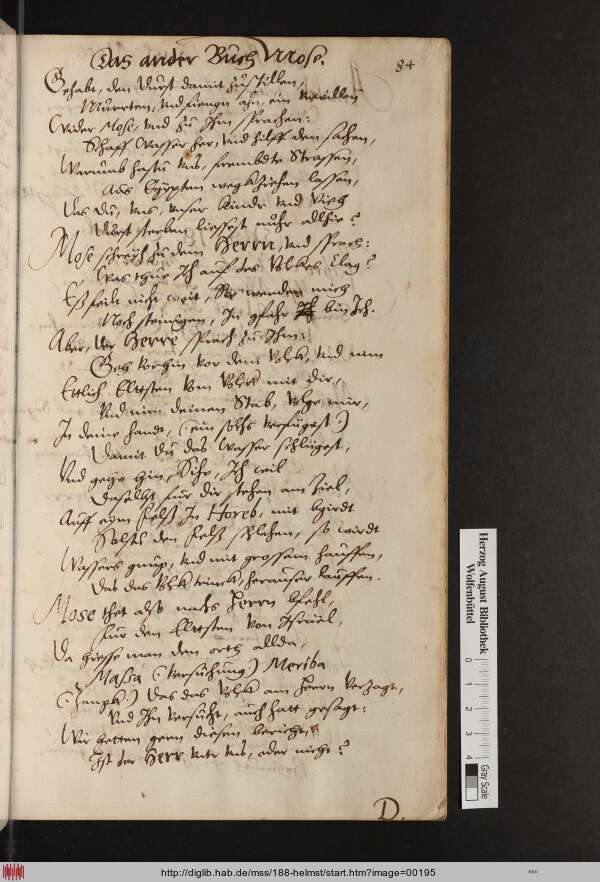 Das ander Buch Mose.
84
Gehabt, den Durst damit zustillen,
Murrten, und fiengn ahn, ein
Wider Mose, und zu Ihm sprachen:
Schaff Wasser her, und hilff den sachen,
Warumb hastu uns, frembdte Strassen,
Aus Egypten wegkziehen lassen,
Das Du, uns, unser Kindr und Viech
Durst sterben liessest nuhr alhie?
Mose schreyh zu dem Herrn, und sprach:
Was thue Ich auf des Volckes Clag?
Eß feilt nicht weit, Sie werden mich
Noch steinigen, In gfahr bin Ich.
Aber, der Herre sprach zu Ihm:
Geh vorhin vor dem Volck, und nim
Ettlich Eltsten vom Volck mit dir,
Und nim deinen Stab, volge mir,
In deine handt, (ein solchs verfügest)
Damit Du das Wasser schlügest,
Und gehe hin, Sihe, Ich wil
Daselbst für dir stehen am Ziel,
Auff eym Felß In Horeb, mit
Solstu den Felß schlahen, so wirdt
Wassers gnug, und mit grossem hauffen,
Das das Volck trinck, herausser lauffen.
Mose thet also nachs Herrn bfehl,
Für den Eltsten von Israel,
Da hiesse man den orth allda,
Massa (Versuchung) Meriba
(Zangk) Das das Volck am Herrn verzagt,
Und Ihn versucht, auch hatt gesagt:
Wir hetten gern diesen bericht,
Ist der Herr untr uns, oder nicht?
D.
Herzog August Bibliothek
Wolfenbüttel
0 1 2 3 4
Gray Scale
http://diglib.hab.de/mss/188-helmst/start.htm?image=00195